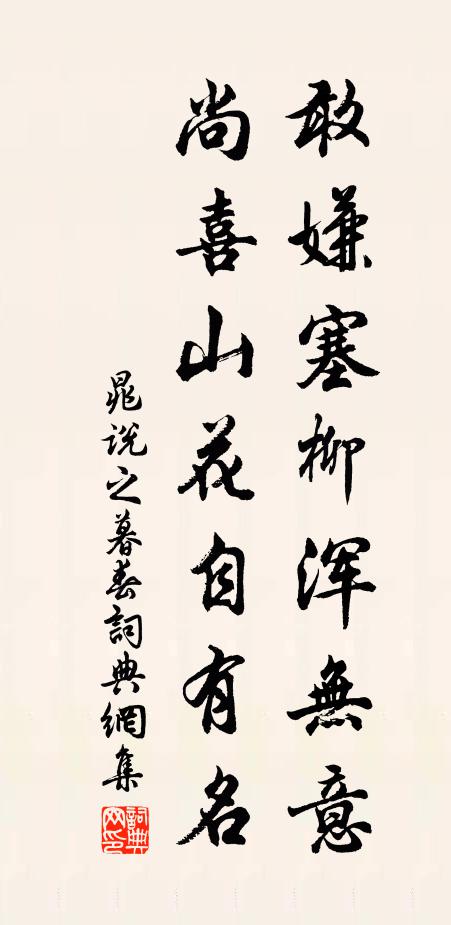 敢嫌塞柳浑無意
尚喜山花自有名
晁说之暮春詞典網集
詞典网印